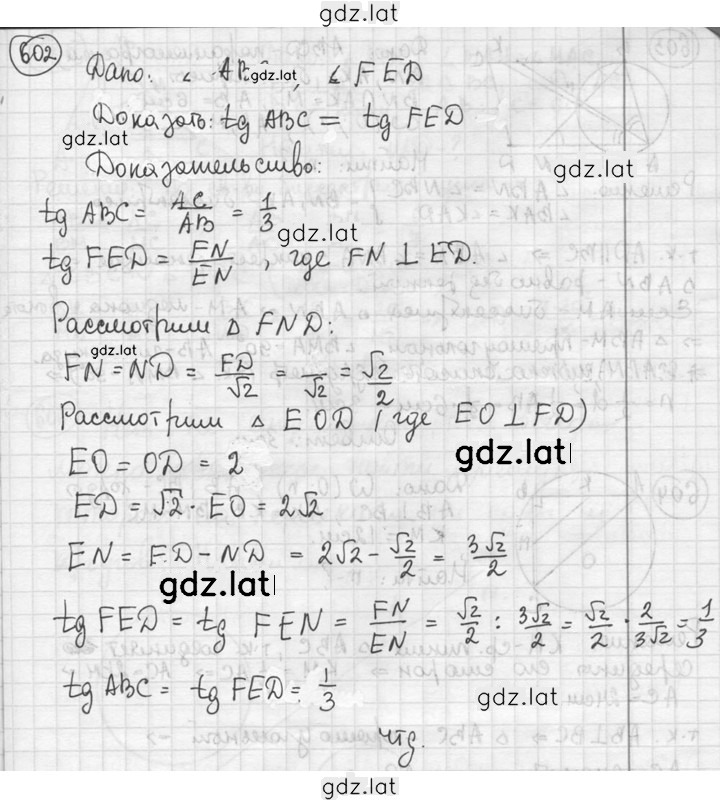 gdz.lat
602
Дано: ∠ AB gdz.lat, ∠ FED
Доказать: tg ABC = tg FED
gdz.lat
Доказательство:
gdz.lat
tg ABC = AC/AB = 1/3
gdz.lat
tg FED = FN/EN, где FN ⊥ ED.
Рассмотрим △ FND:
gdz.lat
FN = ND = FD/√2 = /√2 = √2/2
Рассмотрим △ EOD (где EO ⊥ FD)
gdz.lat
EO = OD = 2
ED = √2 · EO = 2√2
EN = ED - ND = 2√2 - √2/2 = 3√2/2
gdz.lat
tg FED = tg FEN = FN/EN = √2/2 : 3√2/2 = √2/2 · 2/3√2 = 1/3
tg ABC = tg FED = 1/3
gdz.lat
чтд.
gdz.lat